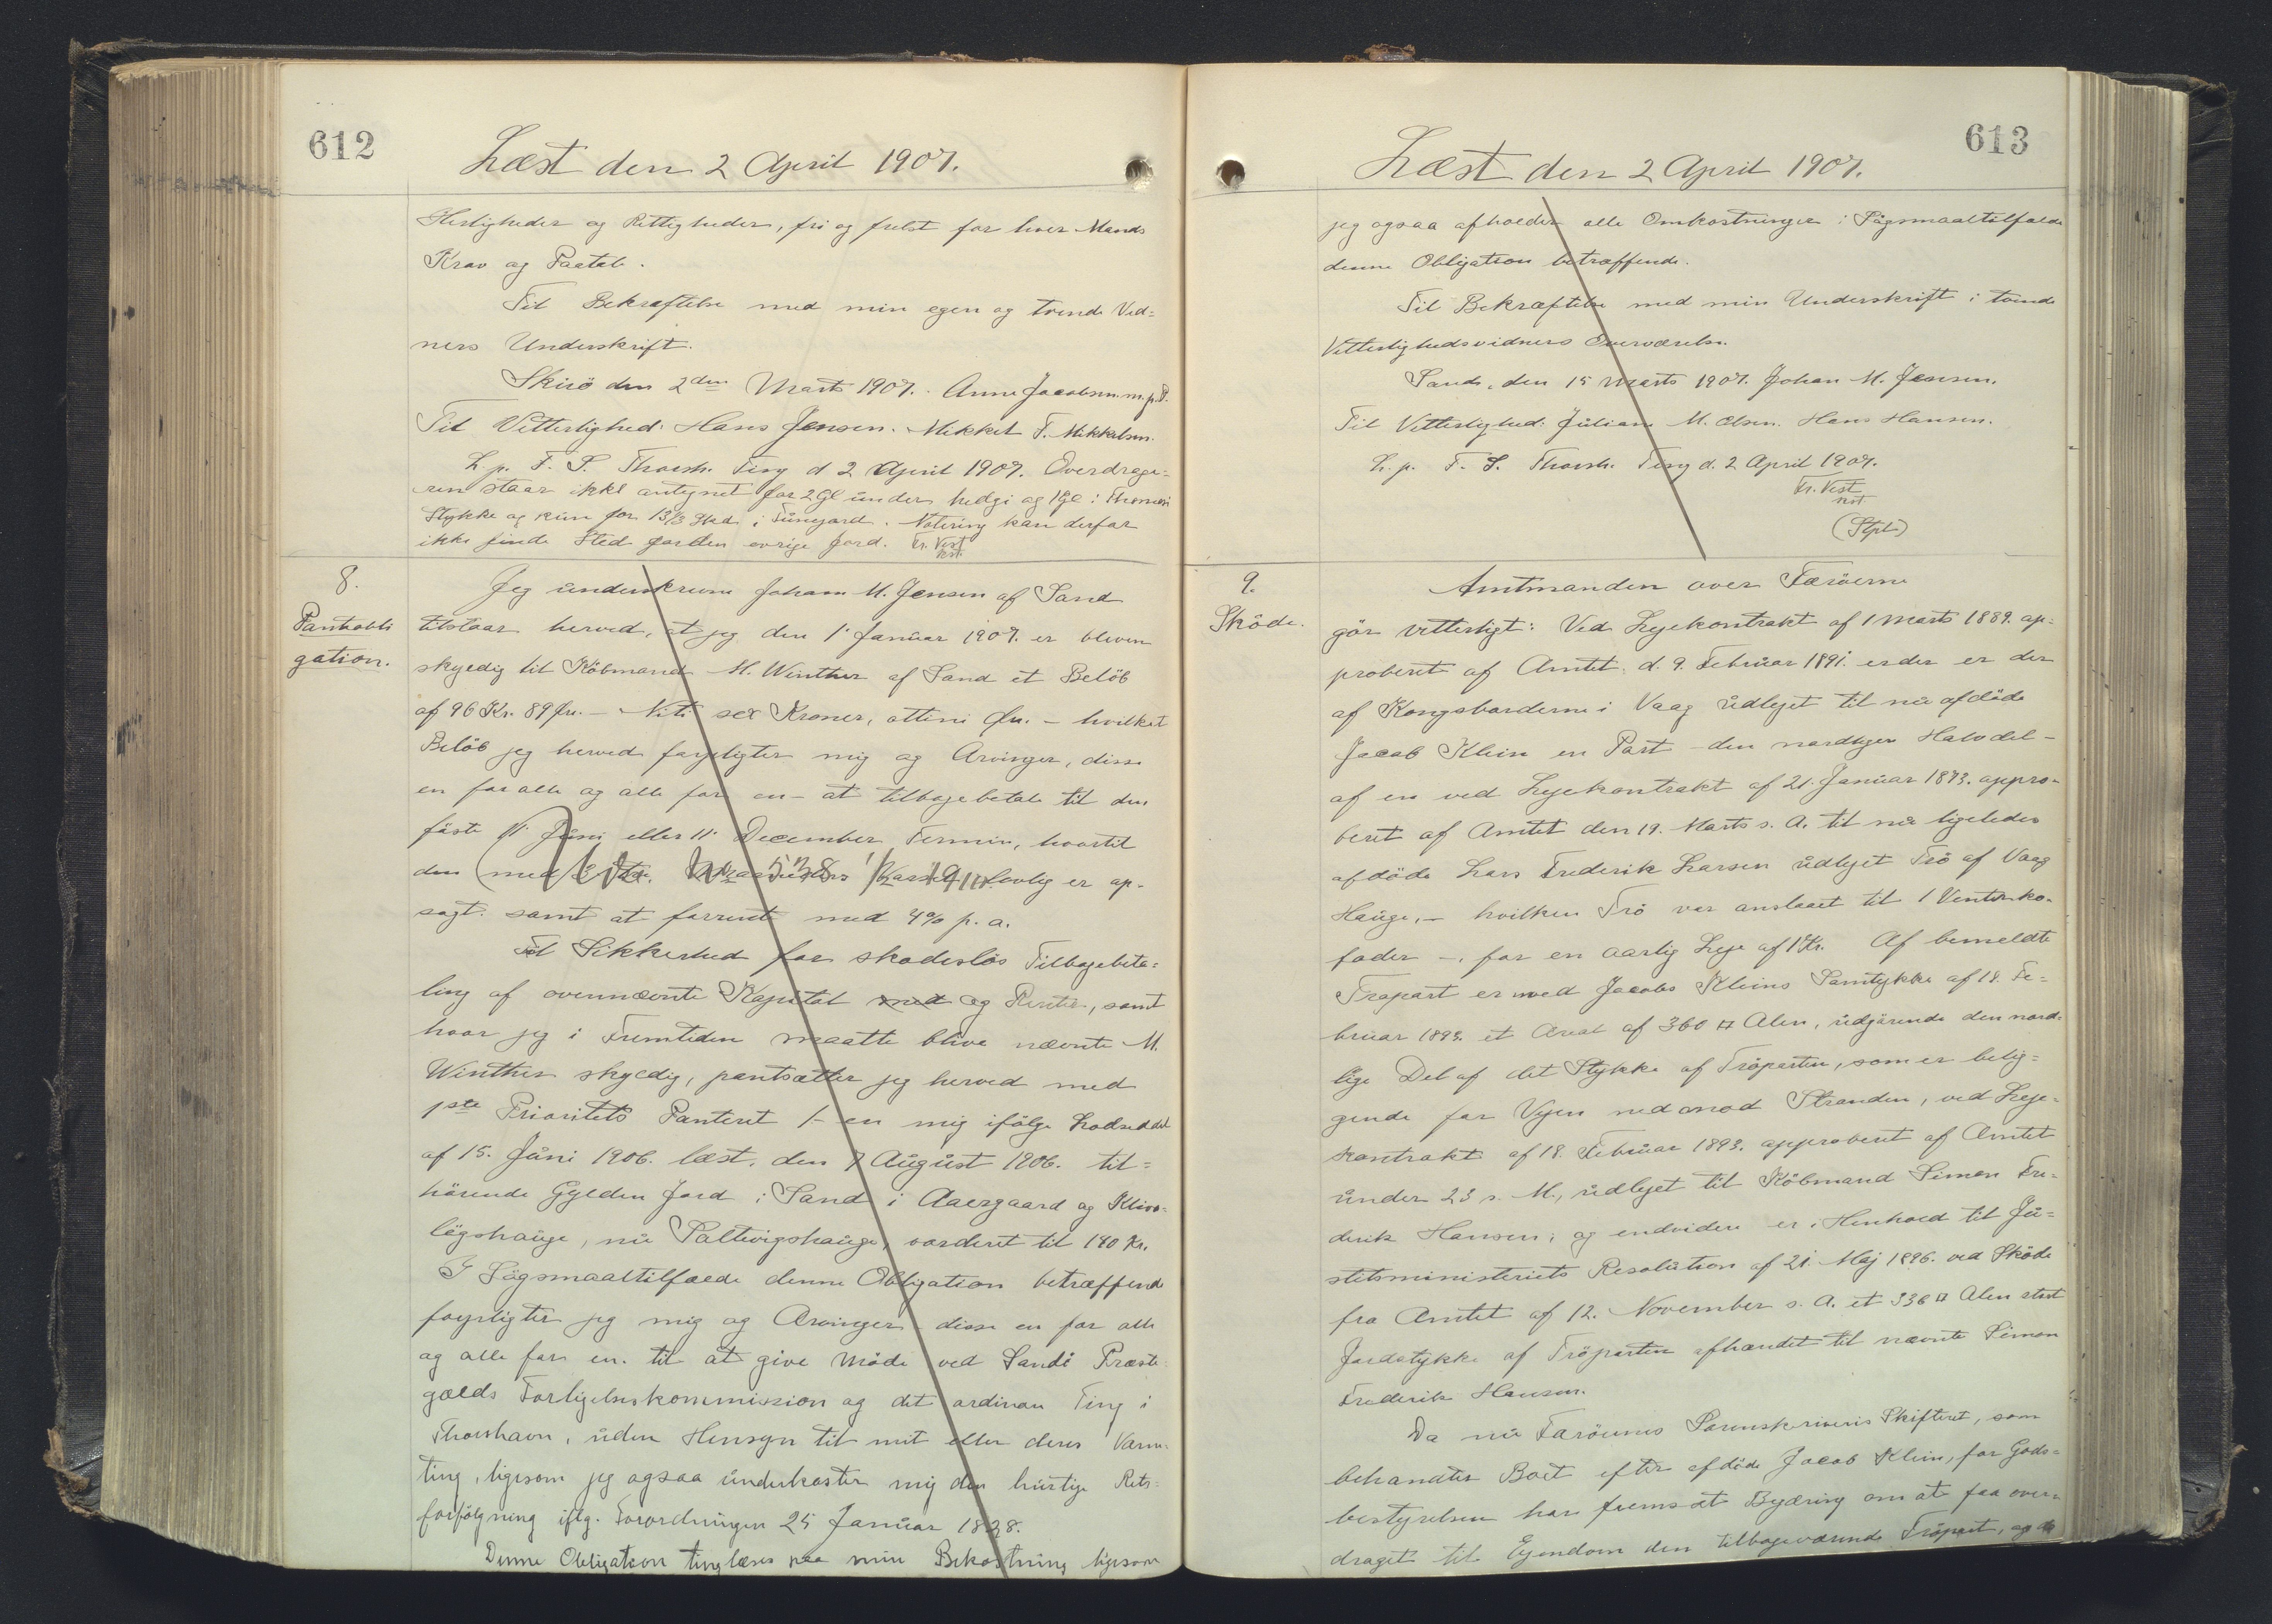 612
Læst den 2 April 1907.
Herligheder og Rettigheder, fri og frelst for hver Mands
Krav og Paatale.
Til Bekræftelse med min egen og tvende Vid=
ners Underskrift.
Skirö den 2den Marts 1907. Anne Jacobsen m.p.P.
Til Vitterlighed: Hans Jensen. Mikkel F. Mikkelsen.
L. p. F. S. Thorsh. Ting d 2 April 1907. Overdrage=
ren staar ikke antegnet for 2 Gl under hedgi og 1 Gl i
Stykke og kun for 13/3 Skd i Túngard. Notering kan derfor
ikke finde Sted for den øvrige Jord. Kr. Vest
kst.
8.
Pantobli
gation.
Jeg underskrevne Johan M. Jensen af Sand
tilstaar herved, at jeg den 1' Januar 1907. er bleven
skyldig til Köbmand M. Winther af Sand et Belöb
af 96 Kr. 89 Øre. - Niti sex Kroner, ottini Øre. - hvilket
Belöb jeg herved forpligter mig og Arvinger, disse
en for alle og alle for en - at tilbagebetale til den
förste 11' Juni eller 11' December Termin, hvortil
den med lovlig er op-
sagt. samt at forrente med 4% p. a.
Til Sikkerhed for skadeslös Tilbagebeta=
ling af ovennævnte Kapital med og Renter, samt
hvor jeg i Fremtiden maatte blive nævnte M.
Winther skyldig, pantsætter jeg herved med
1ste Prioritets Panteret i en mig ifölge Lodseddel
af 15. Juni 1906. læst. den 7 August 1906. til=
hörende Gylden Jord i Sand i Aaergaard og Kliv=
lögshauge, nu Saltvigshauge, vorderet til 140 Kr.
I Sögsmaaltilfælde denne Obligation betræffende
forpligter jeg mig og Arvinger - disse en for alle
og alle for en. til at give Möde ved Sandö Præste
gælds Forligelseskommission og det ordinære Ting i
Thorshavn, uden Hensyn til mit eller deres Værne
ting, ligesom jeg ogsaa underkaster mig den hurtige Rets=
forfölgning iflg. Forordningen 25 Januar 1828.
Denne Obligation tinglæses paa min Bekostning ligesom
613
Læst den 2 April 1907.
jeg ogsaa afholder alle Omkostninger i Sögsmaaltilfælde
denne Obligation betræffende.
Til Bekræftelse med min Underskrift i tvende
Vitterlighedsvidners Overværelse.
Sand, den 15 Marts 1907. Johan M. Jensen.
Til Vitterlighed: Julian M. Olsen. Hans Hansen.
L. p. F. S. Thorsh. Ting d. 2 April 1907.
Kr. Vest
kst
(Stpl)
9.
Sköde.
Amtmanden over Færöerne
gör vitterligt: Ved Lejekontrakt af 1 Marts 1889. ap-
proberet af Amtet d. 9. Februar 1891. er der
af Kongsborderne i Vaag udlejet til nu afdöde
Jacob Klein en Part - den nordlige Halvdel -
af en ved Lejekontrakt af 21. Januar 1873. appro-
beret af Amtet den 19. Marts s. A. til nu ligeledes
afdöde Lars Frederik Larsen udlejet Trö af Vaag
Hauge, - hvilken Trö var anslaaet til 1 Vinterko-
foder -, for en aarlig Leje af 1 Kr. Af bemeldte
Tröpart er med Jacobs Kleins Samtykke af 18. Fe=
bruar 1893. et Areal af 360 □ Alen, udgörende den nord-
lige Del af det Stykke af Tröparten, som er belig=
gende for Vejen ned mod Stranden, ved Leje-
kontrakt af 18. Februar 1893. approberet af Amtet
under 23 s. M., udlejet til Köbmand Simon Fre-
derik Hansen; og endvidere er i Henhold til Ju=
stitsministeriets Resolution af 21. Maj 1896. ved Sköde
fra Amtet af 12. November s. A. et 336 □ Alen stort
Jordstykke af Tröparten afhændet til nævnte Simon
Frederik Hansen.
Da nu Færöernes Sorenskriveris Skifteret, som
behandler Boet efter afdöde Jacob Klein, for Gods=
bestyrelsen har fremsat Begæring om at faa over=
draget til Ejendom den tilbageværende Tröpart, og da